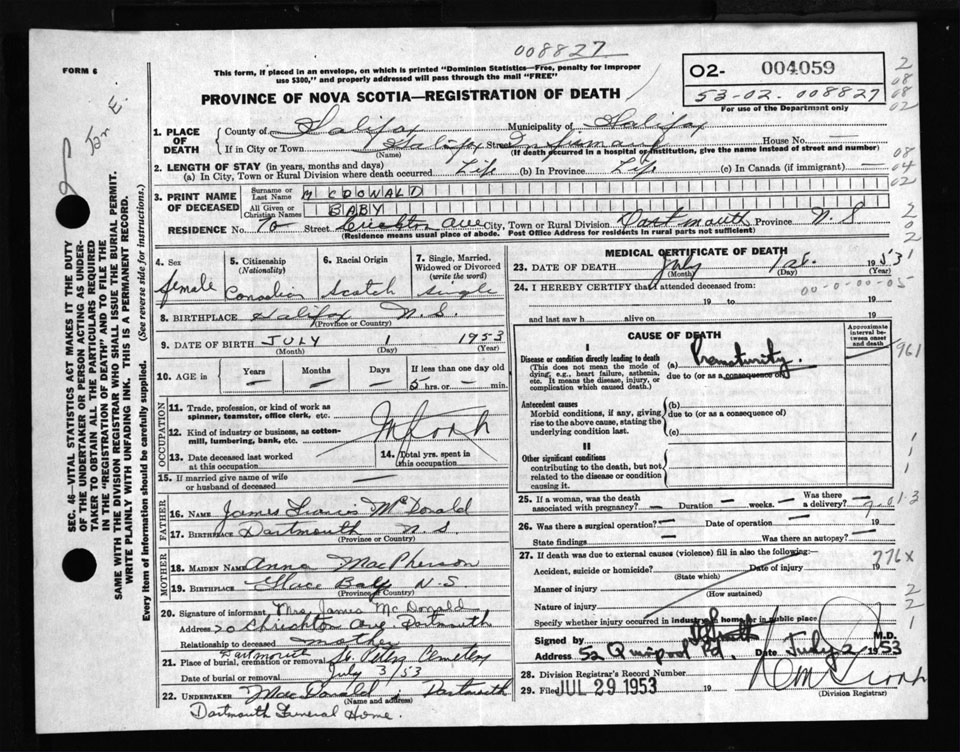 008827
FORM 6
This form, if placed in an envelope, on which is printed "Dominion Statistics—Free, penalty for improper
use $300," and properly addressed will pass through the mail "FREE"
02- 004059
53-02-008827
For use of the Department only
2
08
08
02
Jan E.
PROVINCE OF NOVA SCOTIA—REGISTRATION OF DEATH
1. PLACE OF DEATH
County of Halifax Municipality of Halifax
If in City or Town Halifax Street Infirmary House No. —
(Name) (If death occurred in a hospital or institution, give the name instead of street and number)
2. LENGTH OF STAY (in years, months and days)
(a) In City, Town or Rural Division where death occurred Life (b) In Province Life (c) In Canada (if immigrant)
08
04
02
3. PRINT NAME OF DECEASED
Surname or Last Name MCDONALD
All Given or Christian Names BABY
RESIDENCE No. 70 Street Crichton Ave City, Town or Rural Division Dartmouth Province N.S
(Residence means usual place of abode. Post Office Address for residents in rural parts not sufficient)
2
0
2
4. Sex
female
5. Citizenship
(Nationality)
Canadian
6. Racial Origin
Scotch
7. Single, Married,
Widowed or Divorced
(write the word)
single
8. BIRTHPLACE Halifax N.S.
(Province or Country)
9. DATE OF BIRTH JULY 1 1953
(Month) (Day) (Year)
10. AGE in
Years —
Months —
Days —
If less than one day old
5 hrs. or — min.
OCCUPATION
11. Trade, profession, or kind of work as
spinner, teamster, office clerk, etc.
12. Kind of industry or business, as cotton-
mill, lumbering, bank, etc.
13. Date deceased last worked
at this occupation
14. Total yrs. spent in
this occupation
15. If married give name of wife
or husband of deceased
FATHER
16. NAME James Francis McDonald
17. BIRTHPLACE Dartmouth N.S.
(Province or Country)
MOTHER
18. MAIDEN NAME Anna MacPherson
19. BIRTHPLACE Glace Bay N.S
(Province or Country)
20. Signature of informant Mrs. James McDonald
Address 70 Chrichton Ave. Dartmouth
Relationship to deceased mother
21. Place of burial, cremation or removal Dartmouth St. Peters Cemetery
Date of burial or removal July 3/53
22. UNDERTAKER MacDonald, Dartmouth
(Name and address)
Dartmouth Funeral Home.
MEDICAL CERTIFICATE OF DEATH
23. DATE OF DEATH July 1st. 1953
(Day) (Year)
24. I HEREBY CERTIFY that I attended deceased from:
19 to 19
00-0-00-05
and last saw h alive on 19
CAUSE OF DEATH
Approximate interval between onset and death
I
Disease or condition directly leading to death
(This does not mean the mode of
dying, e.g., heart failure, asthenia,
etc. It means the disease, injury, or
complication which caused death.)
(a) Prematurity.
due to (or as a consequence of)
961
Antecedent causes
Morbid conditions, if any, giving
rise to the above cause, stating the
underlying condition last.
(b)
due to (or as a consequence of)
(c)
II
Other significant conditions
contributing to the death, but not
related to the disease or condition
causing it.
1
1
1
25. If a woman, was the death
associated with pregnancy? — Duration — weeks.
Was there
a delivery? —
26. Was there a surgical operation? — Date of operation — 19
State findings — Was there an autopsy? —
27. If death was due to external causes (violence) fill in also the following:—
Accident, suicide or homicide? Date of injury 19
(State which)
776X
Manner of injury
(How sustained)
Nature of injury
Specify whether injury occurred in industry, in home or in public place
2
2
1
Signed by M.D.
Address 52 Quinpool Rd. Date July 2 1953
28. Division Registrar's Record Number
29. Filed JUL 29 1953 19
(Division Registrar)
SEC. 46—VITAL STATISTICS ACT MAKES IT THE DUTY
OF THE UNDERTAKER OR PERSON ACTING AS UNDER-
TAKER TO OBTAIN ALL THE PARTICULARS REQUIRED
IN THE "REGISTRATION OF DEATH" AND TO FILE THE
SAME WITH THE DIVISION REGISTRAR WHO SHALL ISSUE THE BURIAL PERMIT.
WRITE PLAINLY WITH UNFADING INK. THIS IS A PERMANENT RECORD.
Every item of information should be carefully supplied. (See reverse side for instructions.)